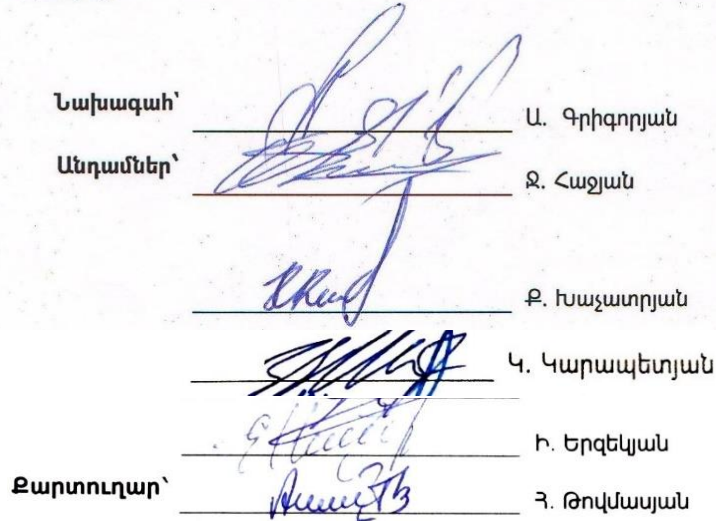 Նախագահ՝ Ա. Գրիգորյան
Անդամներ՝ Ջ. Հաջյան
Ք. Խաչատրյան
Կ. Կարապետյան
Ի. Երզեկյան
Քարտուղար՝ Հ. Թովմասյան